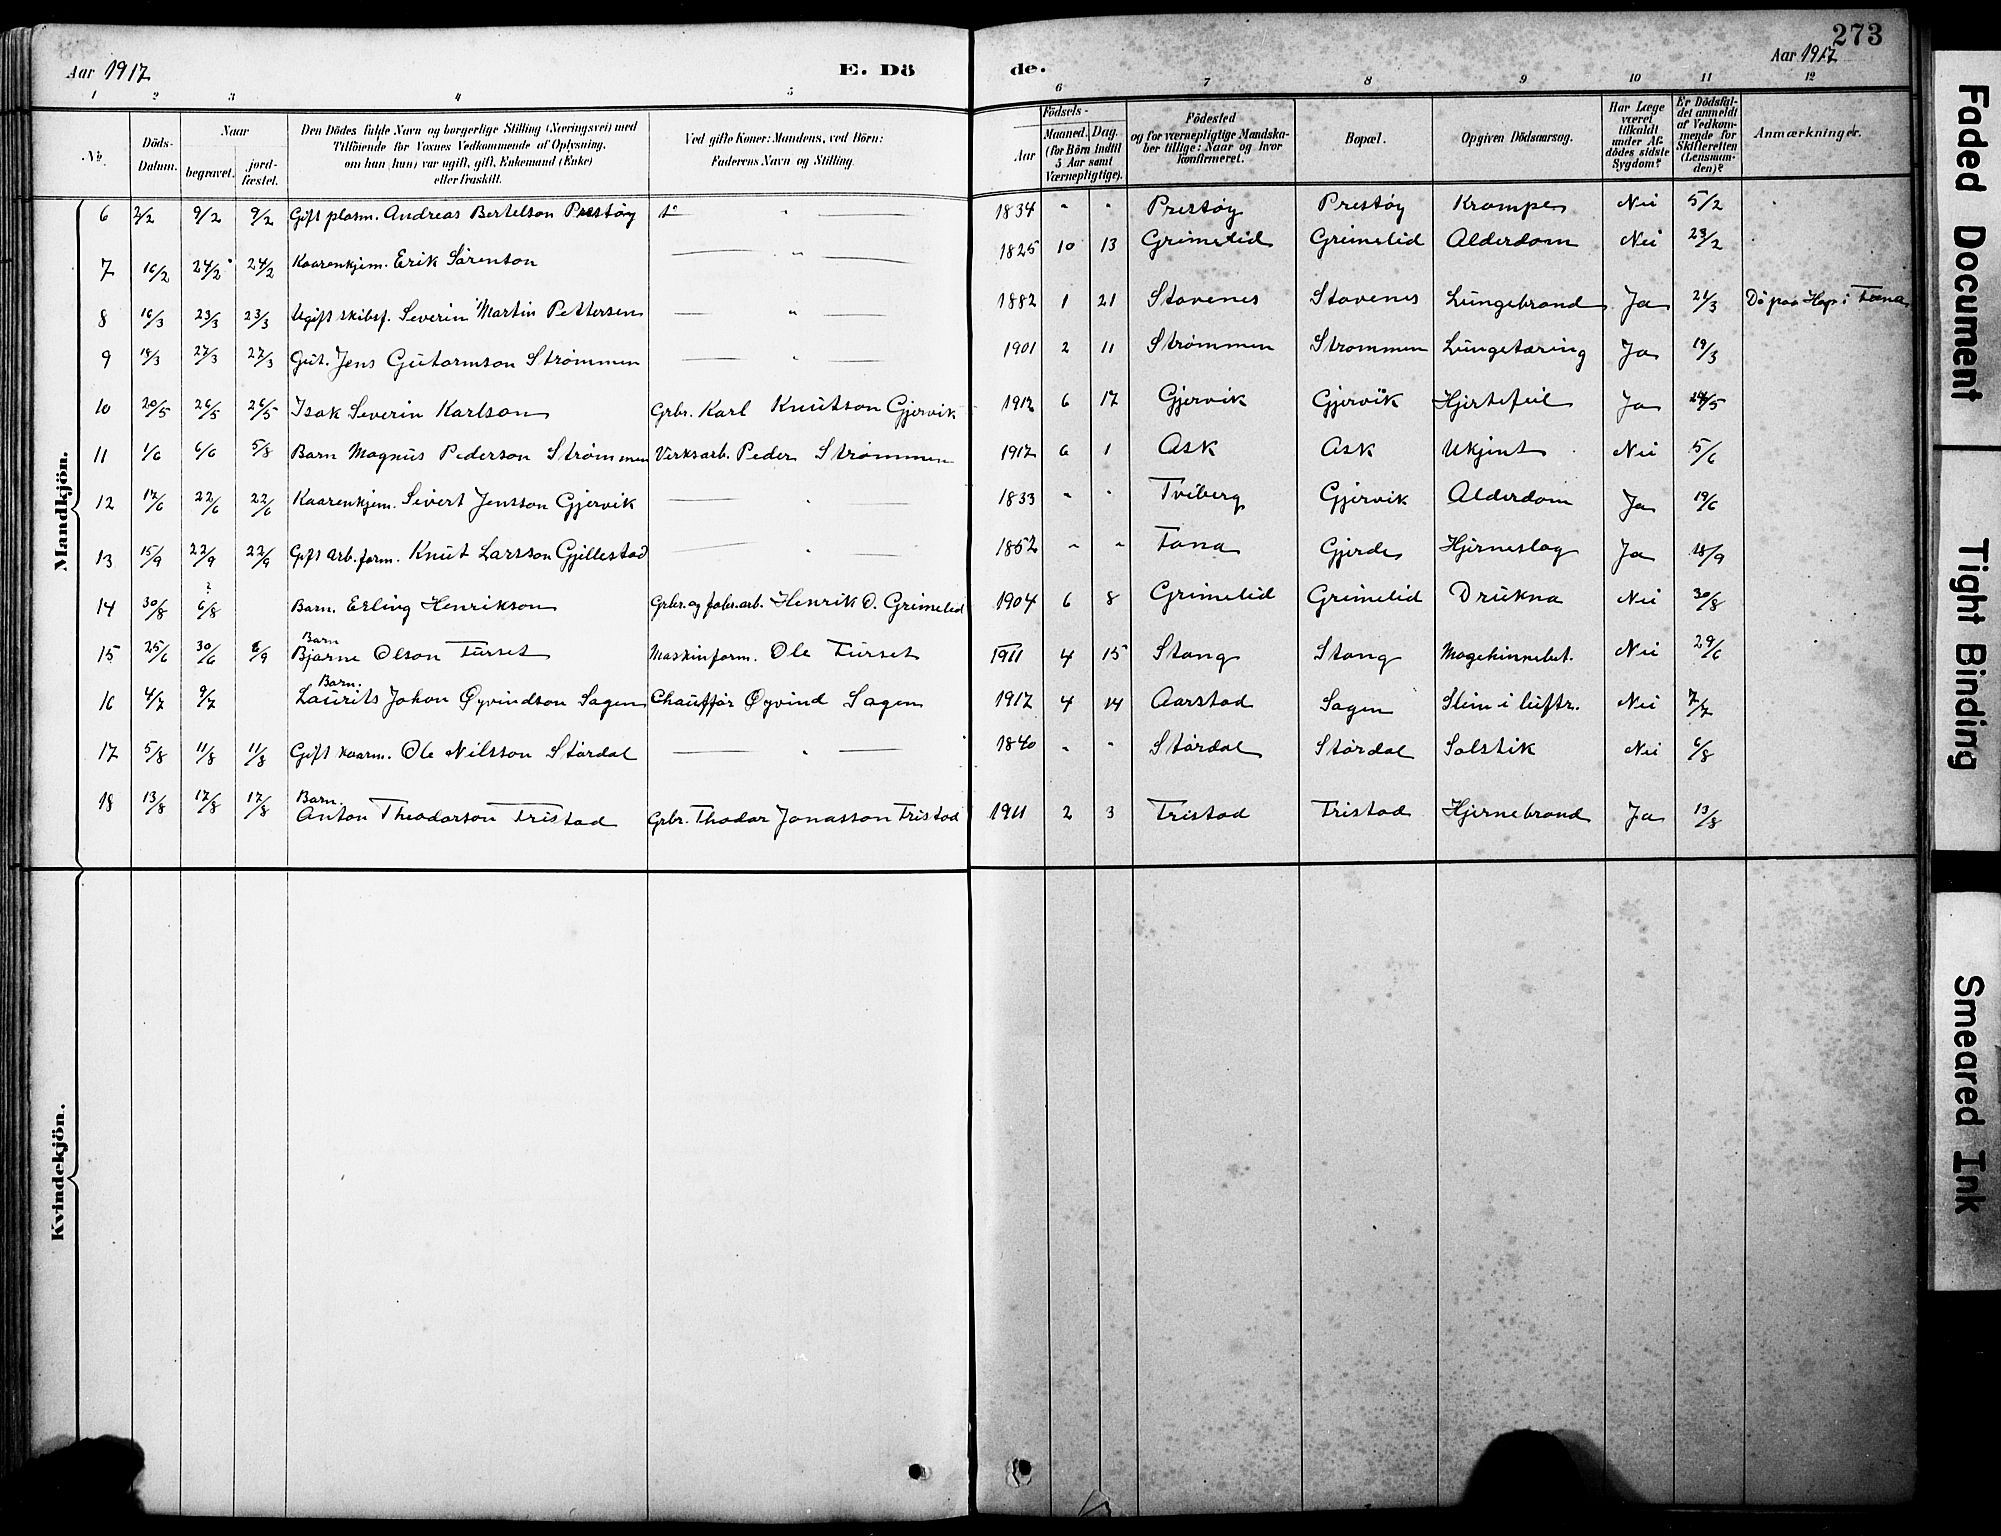 273
Aar 1917 E. Dö de. Aar 1917
1 2 3 4 5 6 7 8 9 10 11 12
Nr. Döds-Datum. Naar begravet. jord-fæstet. Den Dödes fulde Navn og borgerlige Stilling (Næringsvei) med Tilföiende for Voxnes Vedkommende af Oplysning, om han (hun) var ugift, gift, Enkemand (Enke) eller fraskilt. Ved gifte Koner: Mandens, ved Börn: Faderens Navn og Stilling. Födsels- Aar Maaned. Dag. (for Börn indtil 5 Aar samt Værnepligtige). Födested og for værnepligtige Mandskaber tillige: Naar og hvor konfirmeret. Bopæl. Opgiven Dödsaarsag. Har Læge været tilkaldt under Afdödes sidste Sygdom? Er Dödsfaldet anmeldt af Vedkommende for Skifteretten (Lensmanden)? Anmærkninger.
Mandkjön.
6 2/2 9/2 9/2 Gift plasm. Andreas Bertelson Prestøy 1834 " " Prestøy Prestøy Krampe Nei 5/2
7 16/2 24/2 24/2 Kaarenkjem. Erik Sørenson 1825 10 13 Grimelid Grimelid Alderdom Nei 23/2
8 16/3 23/3 23/3 Ugift skibsf. Severin Martin Pettersen " 1882 1 21 Stavenes Stavenes Lungebrand Ja 21/3 Dø paa Hop i Fana
9 18/3 27/3 27/3 Gut. Jens Gutormson Strømmen " 1901 2 11 Strømmen Strømmen Lungetæring Ja 19/3
10 20/5 26/5 26/5 Isak Severin Karlson Grbr. Karl Knutson Gjervik 1912 6 17 Gjervik Gjervik Hjertefeil Ja 24/5
11 1/6 6/6 5/8 Barn Magnus Pederson Strømmen Verksarb. Peder Strømmen 1917 6 1 Ask Ask Ukjent Nei 5/6
12 17/6 22/6 22/6 Kaarenkjem. Sivert Jensson Gjervik " 1833 " " Tviberg Gjervik Alderdom Ja 19/6
13 15/9 22/9 22/9 Gift arb.form. Knut Larsson Gjillestad " 1852 " " Fana Gjerde Hjerneslag Ja 18/9
14 30/8 6/8 ? Barn. Erling Henrikson Grbr. og fabr.arb. Henrik O. Grimelid 1904 6 8 Grimelid Grimelid Drukna Nei 30/8
15 25/6 30/6 8/9 Barn Bjarne Olson Furset Maskinform. Ole Furset 1911 4 15 Stang Stang Magehinnebet. Nei 29/6
16 4/7 9/7 Barn. Laurits Johan Øyvindson Sagen Chauffør Øyvind Sagen 1917 4 14 Aarstad Sagen Slim i luftr. Nei 7/7
17 5/8 11/8 11/8 Gift kaarm. Ole Nilsson Størdal " 1840 " " Størdal Størdal Solstik Nei 6/8
18 13/8 17/8 17/8 Barn. Anton Theodorson Tristad Grbr. Thodor Jonasson Tristad 1911 2 3 Tristad Tristad Hjernebrand Ja 13/8
Kvindekjön.
Faded Document
Tight Binding
Smeared Ink